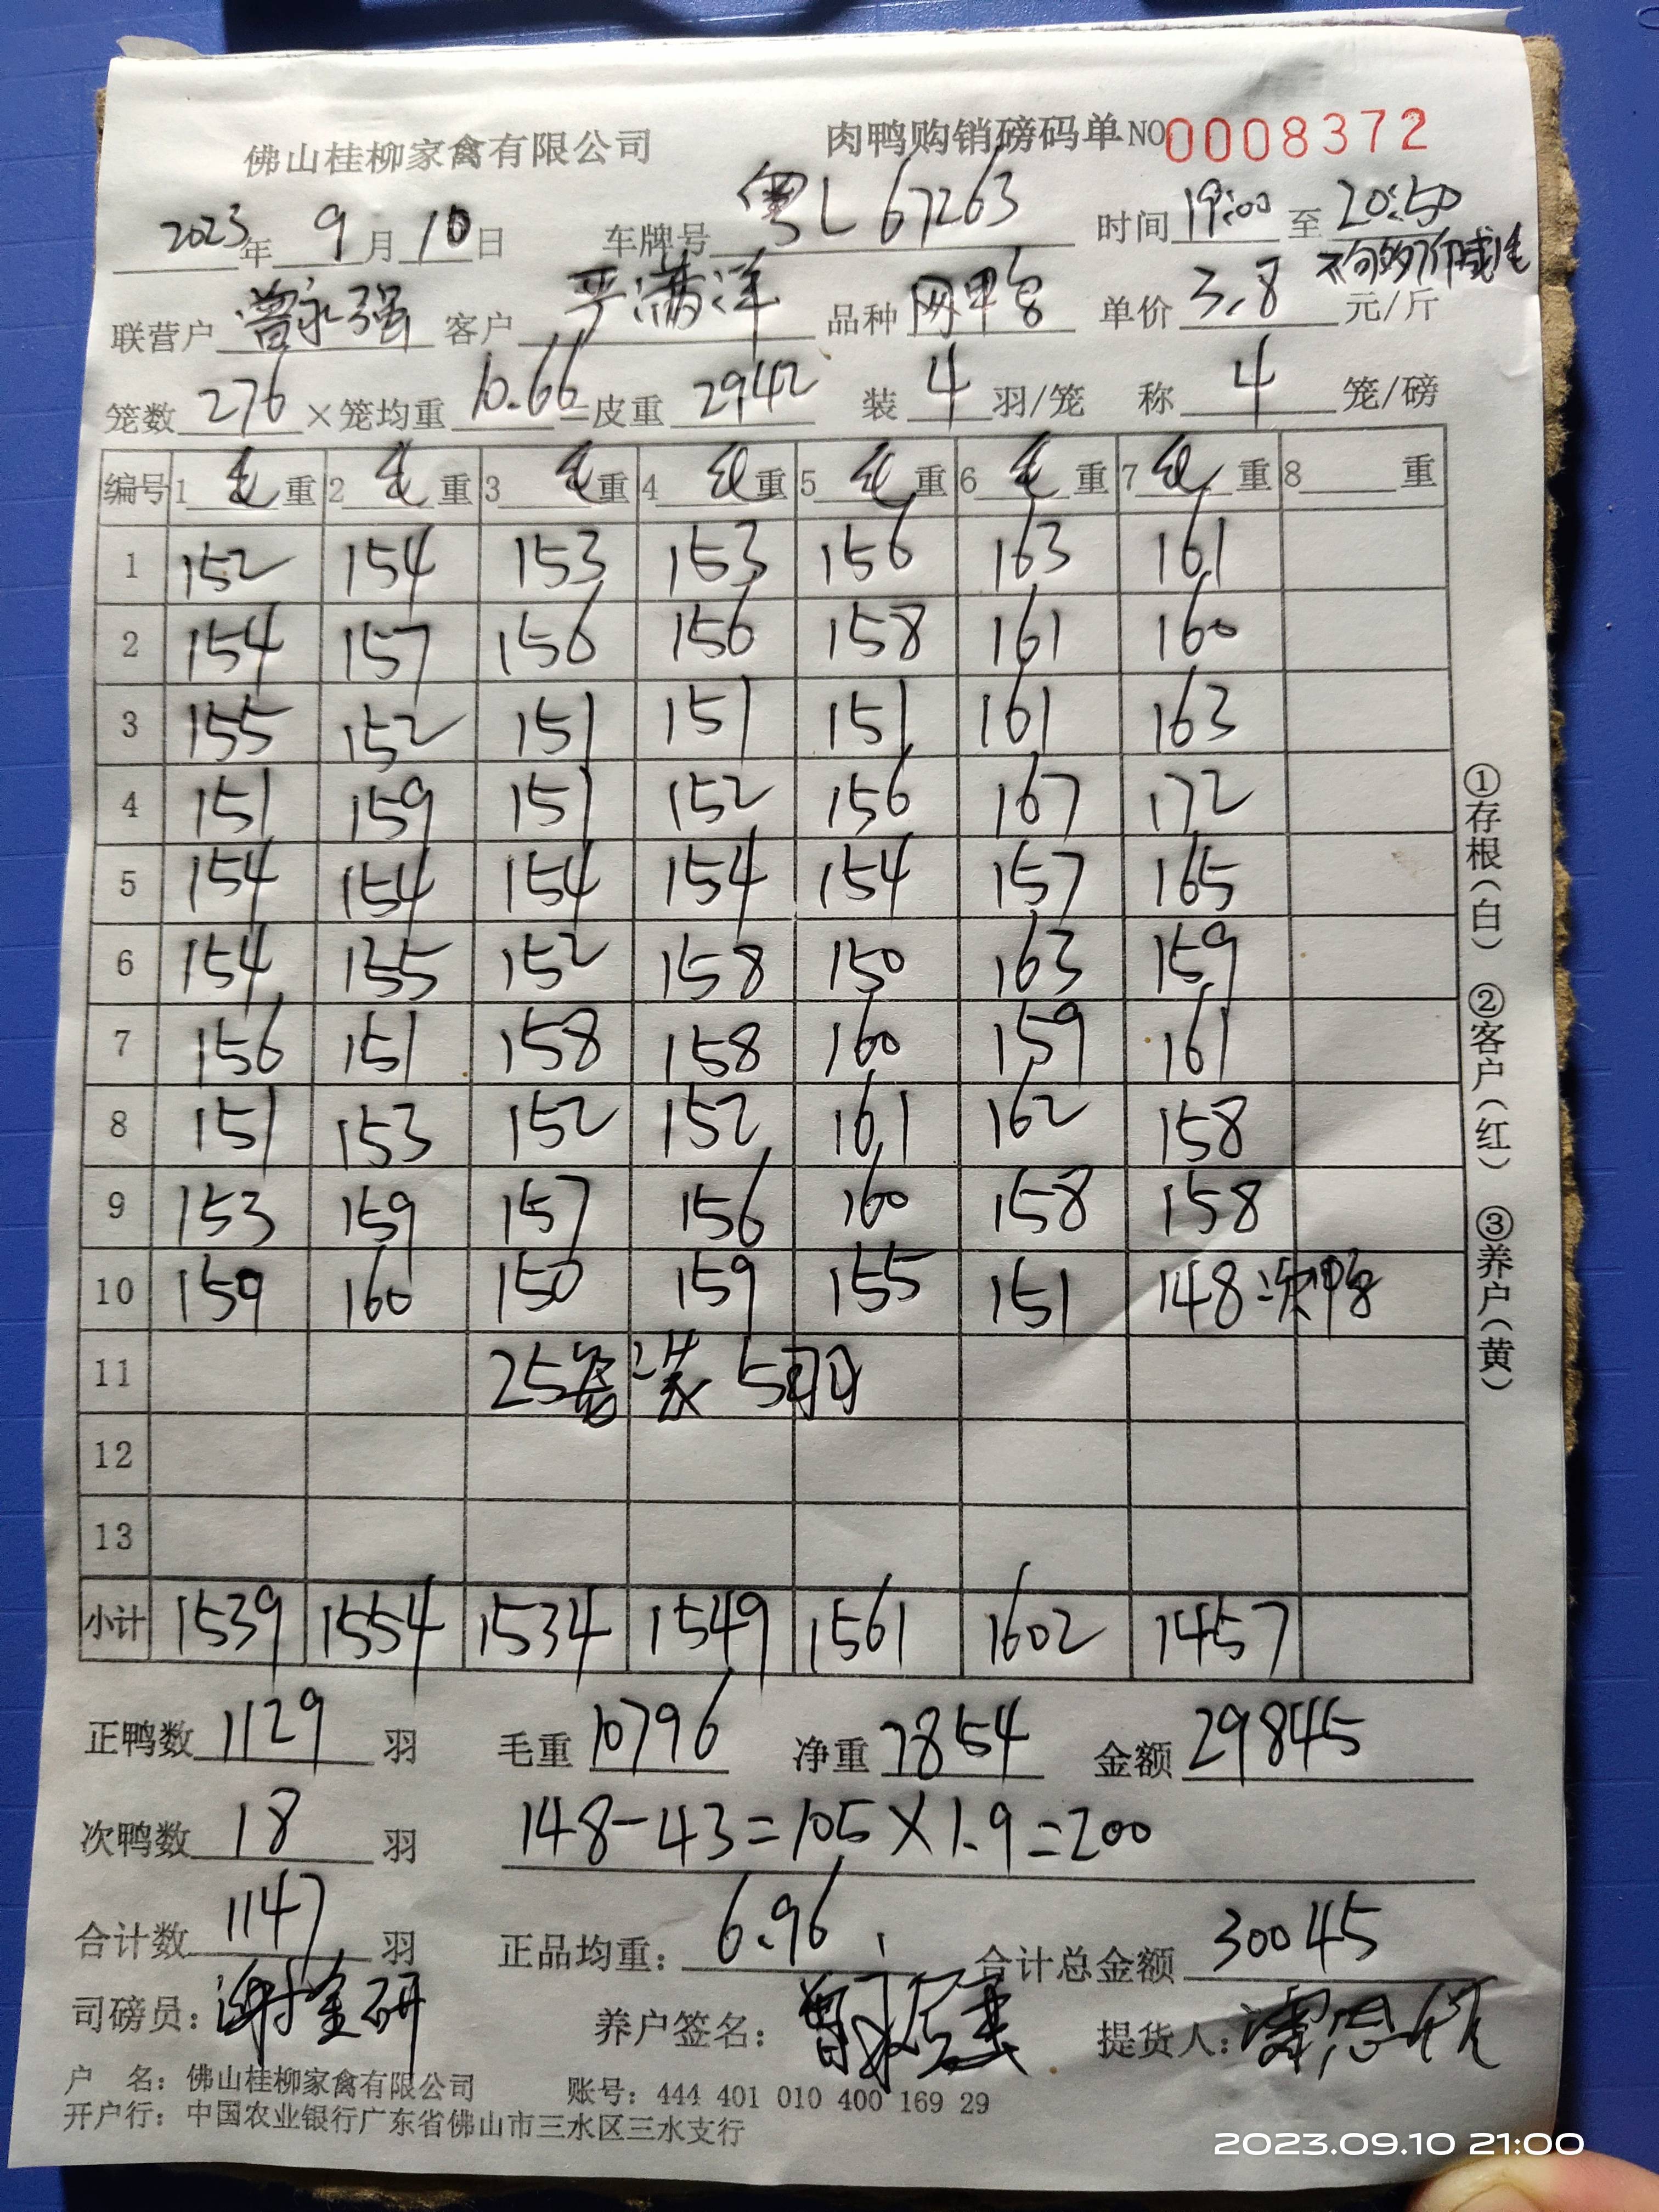 佛山桂柳家禽有限公司 肉鸭购销磅码单 NO 0008372
2023年 9月 10日 车牌号 粤L67263 时间 19:00 至 20:50
联营户 曾永强 客户 严满洋 品种 网甲鸟 单价 3.8 元/斤
笼数 276 ×笼均重 10.66 =皮重 2942 装 4 羽/笼 称 4 笼/磅
编号 1 毛 重 2 毛 重 3 毛 重 4 毛 重 5 毛 重 6 毛 重 7 毛 重 8 重
1 152 154 153 153 156 163 161
2 154 157 156 156 158 161 160
3 155 152 151 151 151 161 163
4 151 159 151 152 156 167 172
5 154 154 154 154 154 157 165
6 154 155 152 158 150 163 159
7 156 151 158 158 160 159 161
8 151 153 152 152 161 162 158
9 153 159 157 156 160 158 158
10 159 160 150 159 155 151 148 次甲鸟
11 25笼 装 5羽
12
13
小计 1539 1554 1534 1549 1561 1602 1457
正鸭数 1129 羽 毛重 10796 净重 7854 金额 29845
次鸭数 18 羽 148-43=105×1.9=200
合计数 1147 羽 正品均重: 6.96 合计总金额 30045
司磅员: 谢金研 养户签名: 提货人:
户 名: 佛山桂柳家禽有限公司 账号: 444 401 010 400 169 29
开户行: 中国农业银行广东省佛山市三水区三水支行
①存根(白) ②客户(红) ③养户(黄)
2023.09.10 21:00